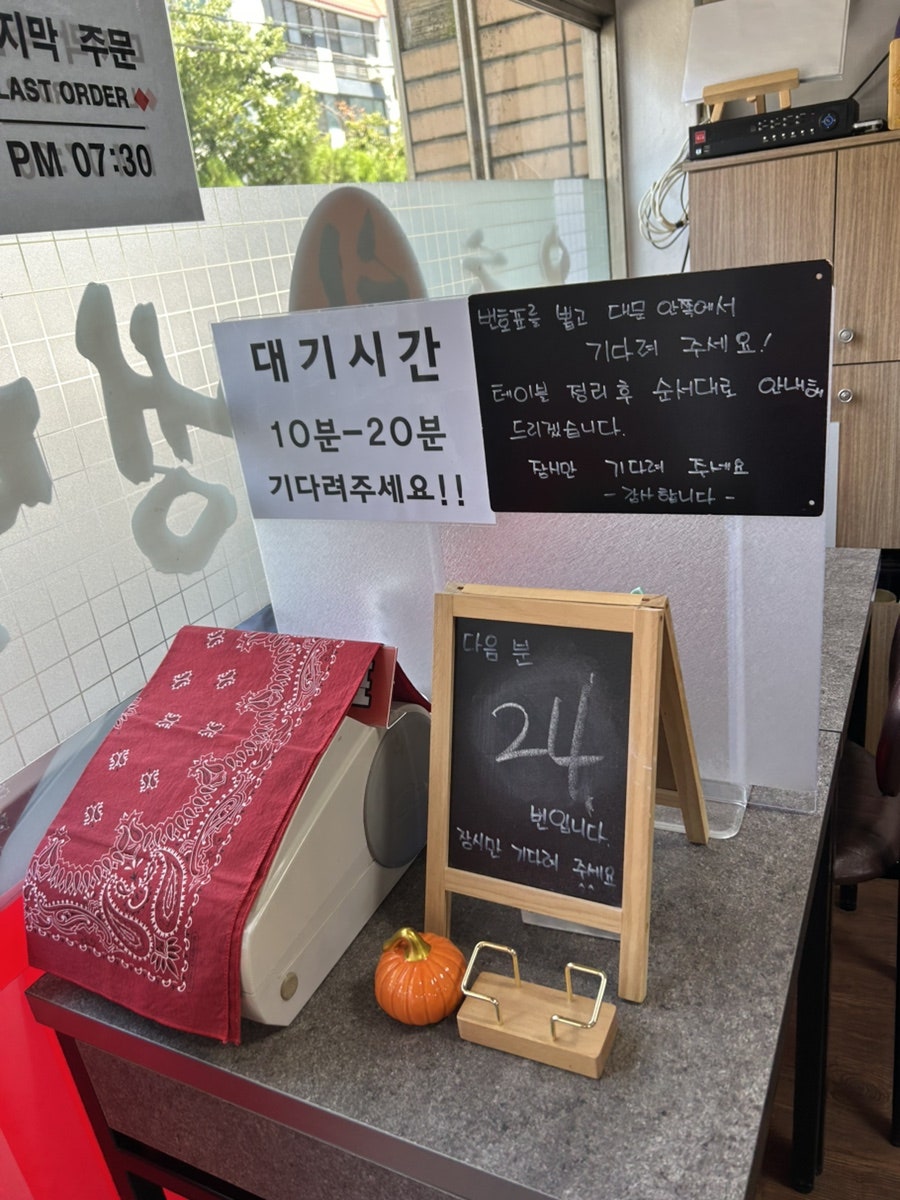 지막 주문
LAST ORDER
PM 07:30
대기시간
10분-20분
기다려주세요!!
번호표를 뽑고 대문 안쪽에서
기다려 주세요!
테이블 정리 후 순서대로 안내해
드리겠습니다.
잠시만 기다려 주세요
- 감사합니다 -
다음 분
24
번입니다.
잠시만 기다려 주세요